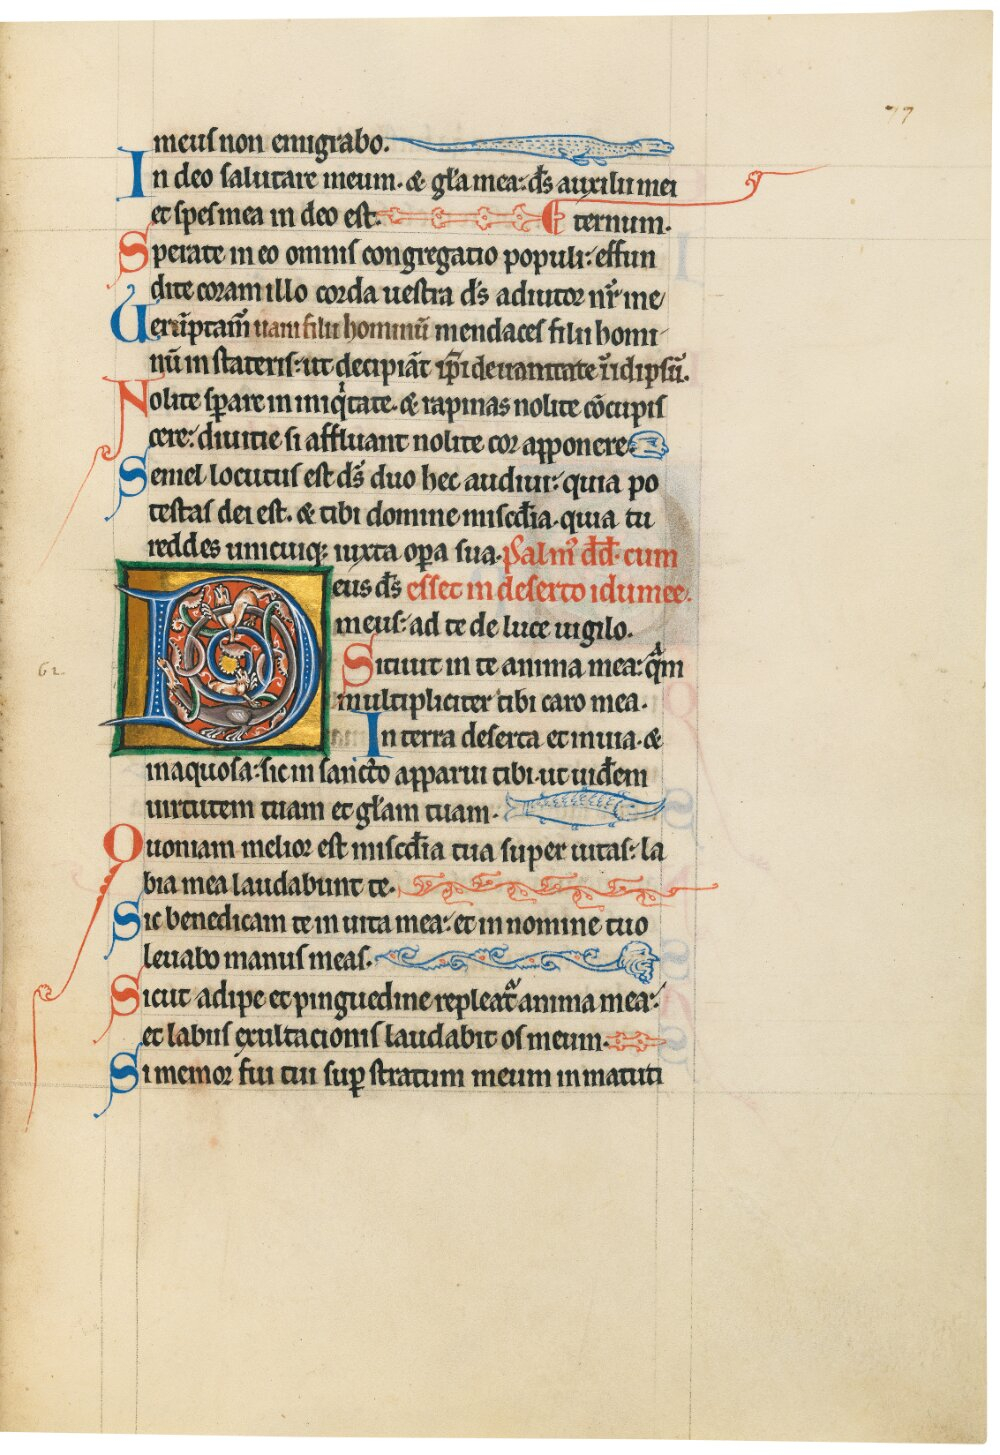 77
meus non emigrabo.
In deo salutare meum. & gl̄a mea: ds̄ auxilii mei
et spes mea in deo est. ternum.
Sperate in eo omnis congregatio populi: effun
dite coram illo corda uestra ds̄ adiutor nr̄
Uerūptam̄ uani filii hominū mendaces filii homi
nū in stateris: ut decipiāt ip̄i de uanitate īidipsū.
Nolite sꝑare in iniqͥtate. & rapinas nolite cōcupis
cere: diuitie si affluant nolite cor apponere
Semel locutus est ds̄ duo hec audiui: quia po
testas dei est. & tibi domine misc̄dia. quia tu
reddes unicuiqꝫ iuxta oꝑa sua. Psalm᷒ dd̄. cum
Deus ds̄ esset in deserto idumee.
62.
meus: ad te de luce uigilo.
Sitiuit in te anima mea: qᵃm
multipliciter tibi caro mea.
In terra deserta et inuia. &
inaquosa: sic in sancto apparui tibi. ut uid̄em
uirtutem tuam et gl̄am tuam.
Quoniam melior est misc̄dia tua super uitas: la
bia mea laudabunt te.
Sic benedicam te in uita mea: et in nomine tuo
leuabo manus meas.
Sicut adipe et pinguedine repleat᷑ anima mea:
et labiis exultacionis laudabit os meum.
Si memor fui tui suꝑ stratum meum in matuti